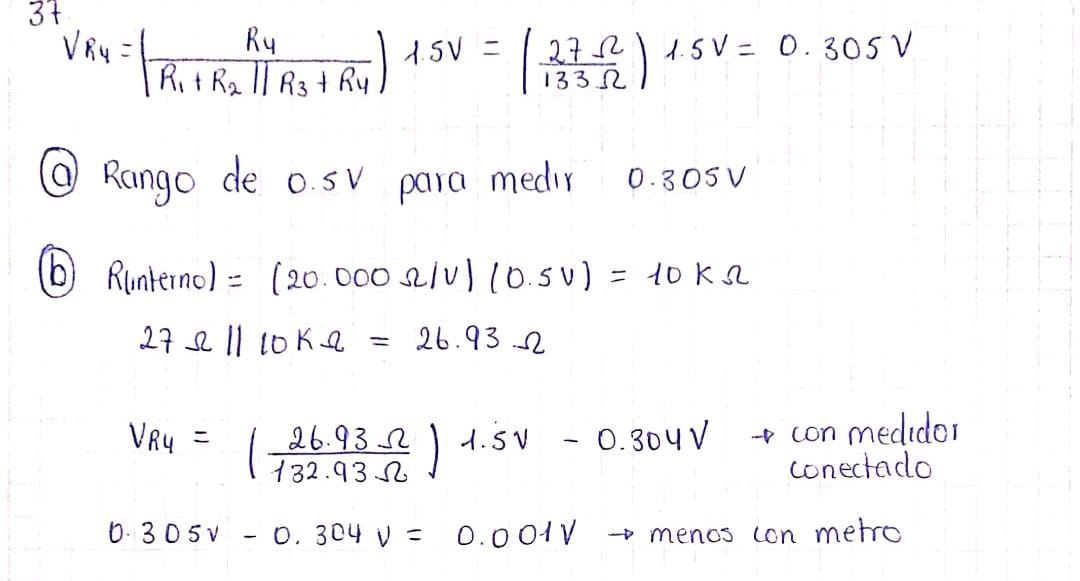 37
VR4 = (R4 / R1 + R2 || R3 + R4) 1.5V = (27 Ω / 133 Ω) 1.5V = 0.305V
(a) Rango de 0.5V para medir 0.305V
(b) R(interno) = (20.000 Ω/V) (0.5V) = 10 KΩ
27 Ω || 10KΩ = 26.93 Ω
VR4 = (26.93 Ω / 132.93 Ω) 1.5V - 0.304V → con medidor
conectado
0.305V - 0.304 V = 0.001V → menos con metro